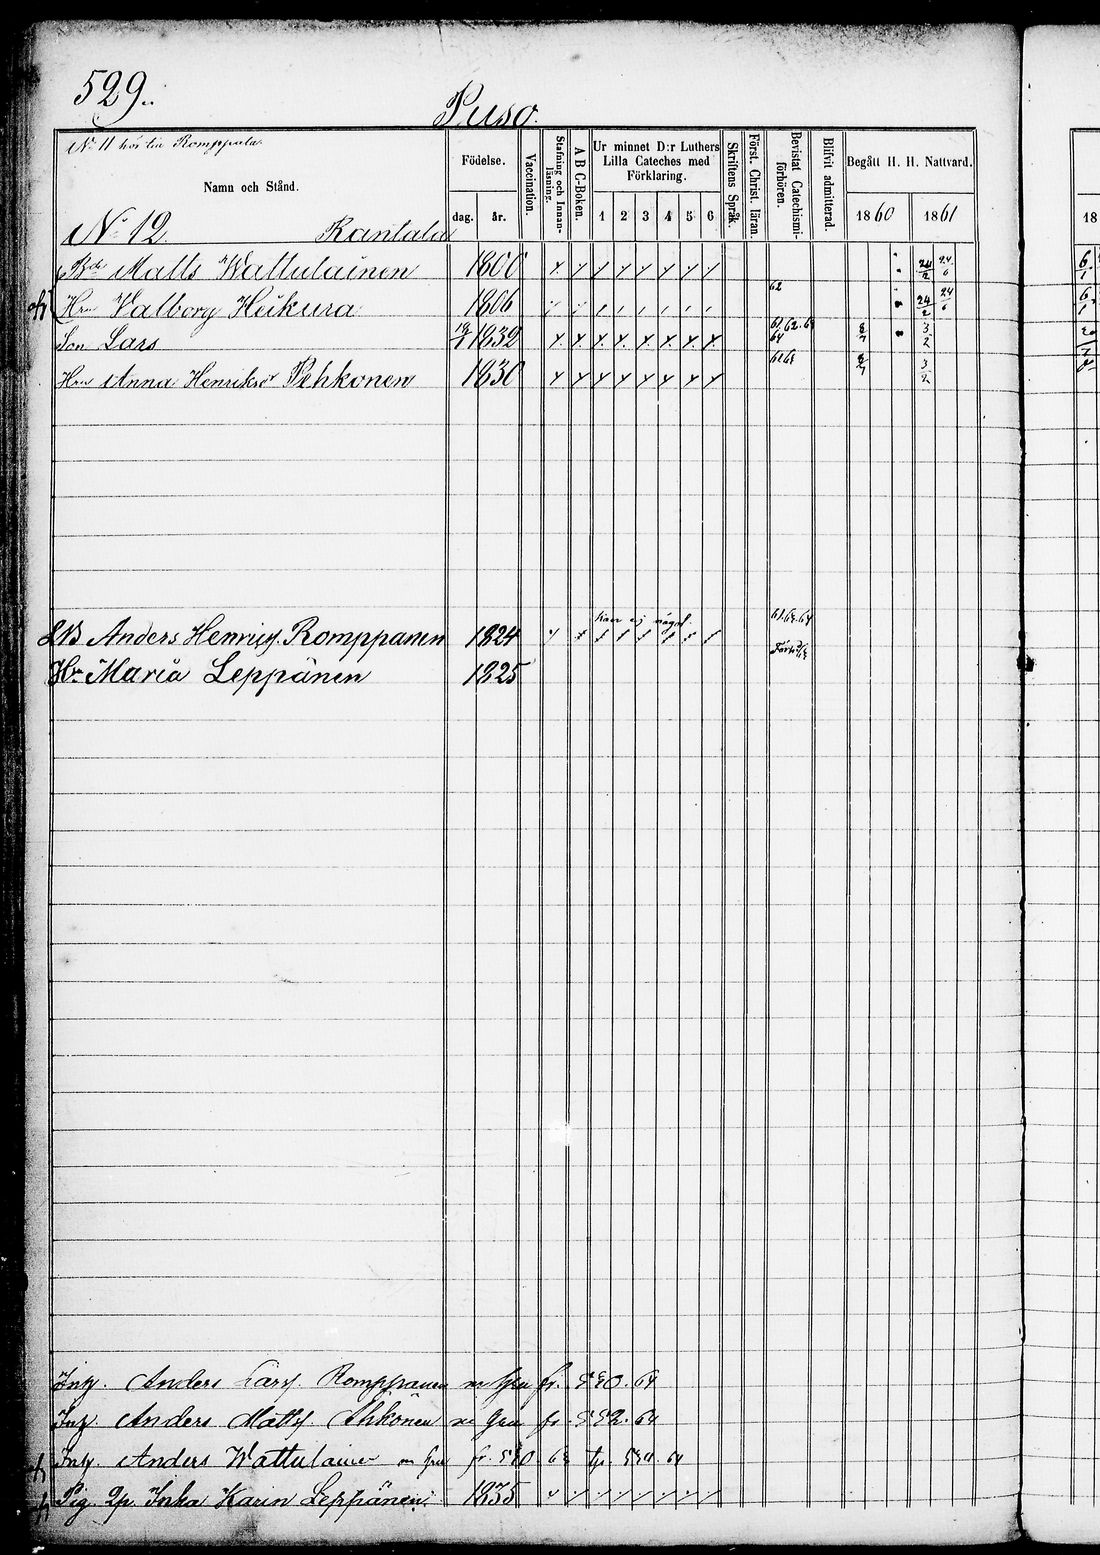 529.
Puso.
No 11 hör till Romppala.
Namn och Stånd.
Födelse.
dag. år.
Vaccination.
Stafning och Innanläsning.
A B C-Boken.
Ur minnet D:r Luthers Lilla Cateches med Förklaring.
1 2 3 4 5 6
Skriftens Språk.
Först. Christ. läran.
Bevistat Catechismiförhören.
Blifvit admitterad.
Begått H. H. Nattvard.
1860 1861
18
No 12. Rantala
Matts Wattulainen 1800 24/2 24/6
Hru Valborg Heikura 1806 62 24/2 24/6
Son Lars 19/1 1832 61. 62. 63 64 8/7 3/2
Hru Anna Henriksdr Pehkonen 1830 61 63 8/7 3/2
Kan ej något
Anders Henriss. Romppanen 1824 61. 63. 64
Hru Maria Leppänen 1825
Inh. Anders Larss. Romppanen m hru fr. 590. 64
Inh. Anders Matts. Ahkonen m hru fr. 552. 64
Inh. Anders Wattulainen m hru fr. 510 63 tr. 534. 64
Pig. Inka Karin Leppänen 1835